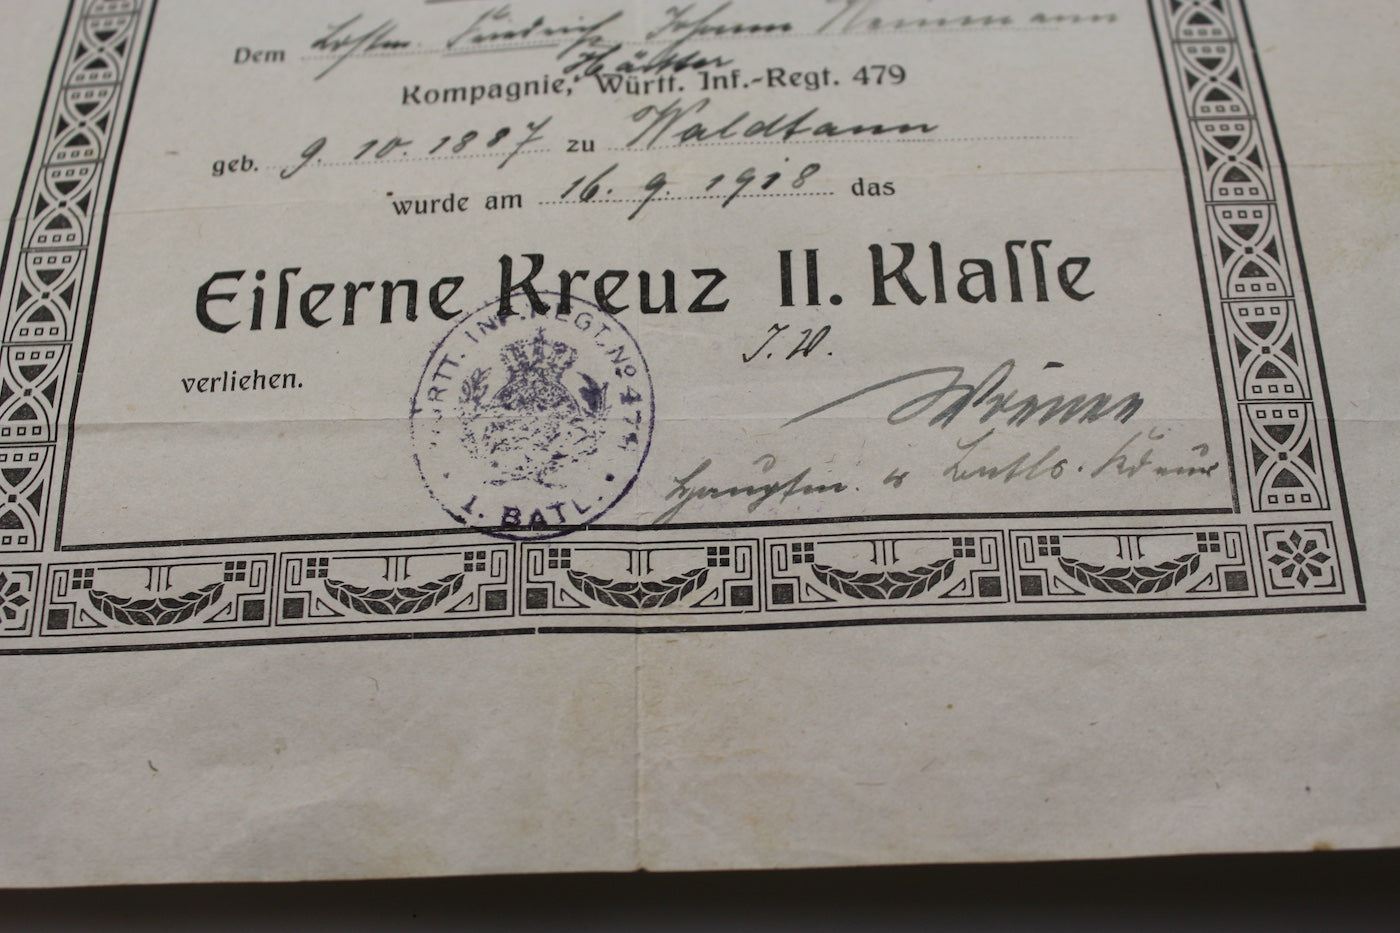 Dem Ldstm. Friedrich Johann
Kompagnie, Württ. Inf.-Regt. 479
geb. 9. 10. 1887 zu Waldtann
wurde am 16. 9. 1918 das
Eiſerne Kreuz II. Klaſſe
J. V.
verliehen.
WÜRTT. INF. REGT. No 479
1. BATL.
Hauptm. u. Batls. Kdeur